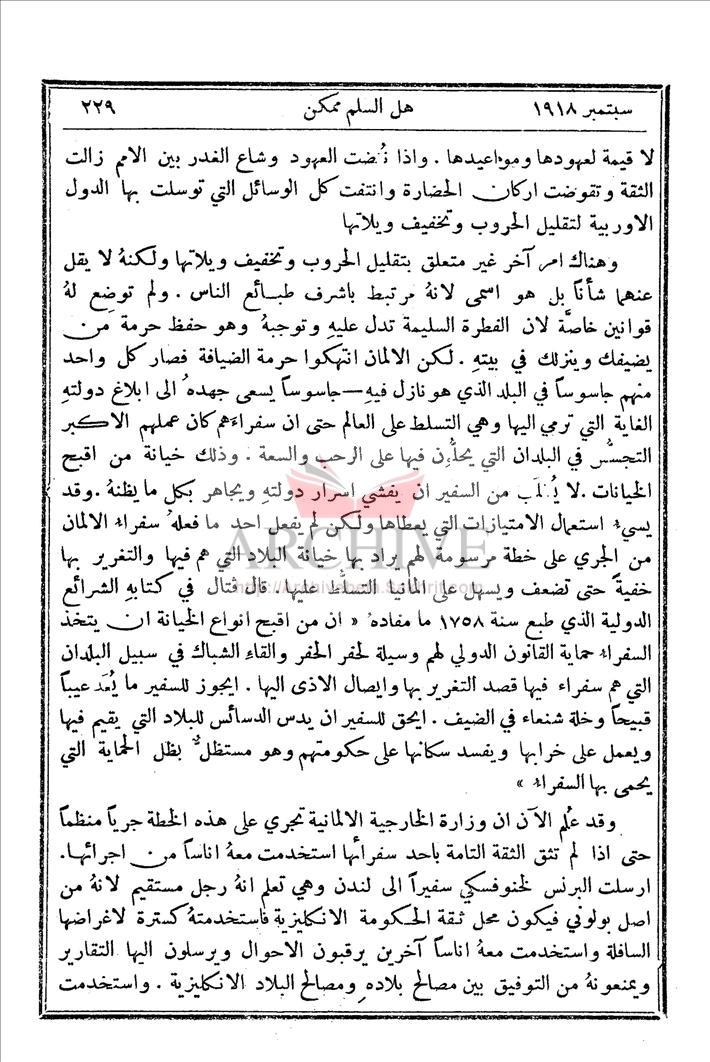 سبتمبر ١٩١٨ هل السلم ممكن ٢٢٩
لا قيمة لعهودها ومواعيدها . واذا نُقضت العهود وشاع الغدر بين الامم زالت
الثقة وتقوضت اركان الحضارة وانتفت كل الوسائل التي توسلت بها الدول
الاوربية لتقليل الحروب وتخفيف ويلاتها
وهناك امر آخر غير متعلق بتقليل الحروب وتخفيف ويلاتها ولكنهُ لا يقل
عنهما شأناً بل هو اسمى لانهُ مرتبط باشرف طبائع الناس . ولم توضع لهُ
قوانين خاصَّة لان الفطرة السليمة تدل عليهِ وتوجبهُ وهو حفظ حرمة من
يضيفك وينزلك في بيتهِ . لكن الالمان انتهكوا حرمة الضيافة فصار كل واحد
منهم جاسوساً في البلد الذي هو نازل فيهِ—جاسوساً يسعى جهدهُ الى ابلاغ دولتهِ
الغاية التي ترمي اليها وهي التسلط على العالم حتى ان سفراءهم كان عملهم الاكبر
التجسُّس في البلدان التي يحلُّون فيها على الرحب والسعة . وذلك خيانة من اقبح
الخيانات . لا يُطلَب من السفير ان يفشي اسرار دولتهِ ويجاهر بكل ما يظنهُ . وقد
يسيءُ استعمال الامتيازات التي يعطاها ولكن لم يفعل احد ما فعلهُ سفراءُ الالمان
من الجري على خطة مرسومة لهم يراد بها خيانة البلاد التي هم فيها والتغرير بها
خفيةً حتى تضعف ويسهل على المانيا التسلُّط عليها . قال ڤتال في كتابهِ الشرائع
الدولية الذي طبع سنة ١٧٥٨ ما مفادهُ « ان من اقبح انواع الخيانة ان يتخذ
السفراءُ حماية القانون الدولي لهم وسيلة لحفر الحفر والقاء الشباك في سبيل البلدان
التي هم سفراء فيها قصد التغرير بها وايصال الاذى اليها . ايجوز للسفير ما يُعَد عيباً
قبيحاً وخلة شنعاء في الضيف . ايحق للسفير ان يدس الدسائس للبلاد التي يقيم فيها
ويعمل على خرابها ويفسد سكانها على حكومتهم وهو مستظلٌّ بظل الحماية التي
يحمى بها السفراءُ »
وقد عُلم الآن ان وزارة الخارجية الالمانية تجري على هذه الخطة جرياً منظماً
حتى اذا لم تثق الثقة التامة باحد سفرائها استخدمت معهُ اناساً من اجرائها.
ارسلت البرنس لخنوفسكي سفيراً الى لندن وهي تعلم انهُ رجل مستقيم لانهُ من
اصل بولوني فيكون محل ثقة الحكومة الانكليزية فاستخدمتهُ كسترة لاغراضها
السافلة واستخدمت معهُ اناساً آخرين يرقبون الاحوال ويرسلون اليها التقارير
ويمنعونهُ من التوفيق بين مصالح بلادهِ ومصالح البلاد الانكليزية . واستخدمت
ARCHIVE